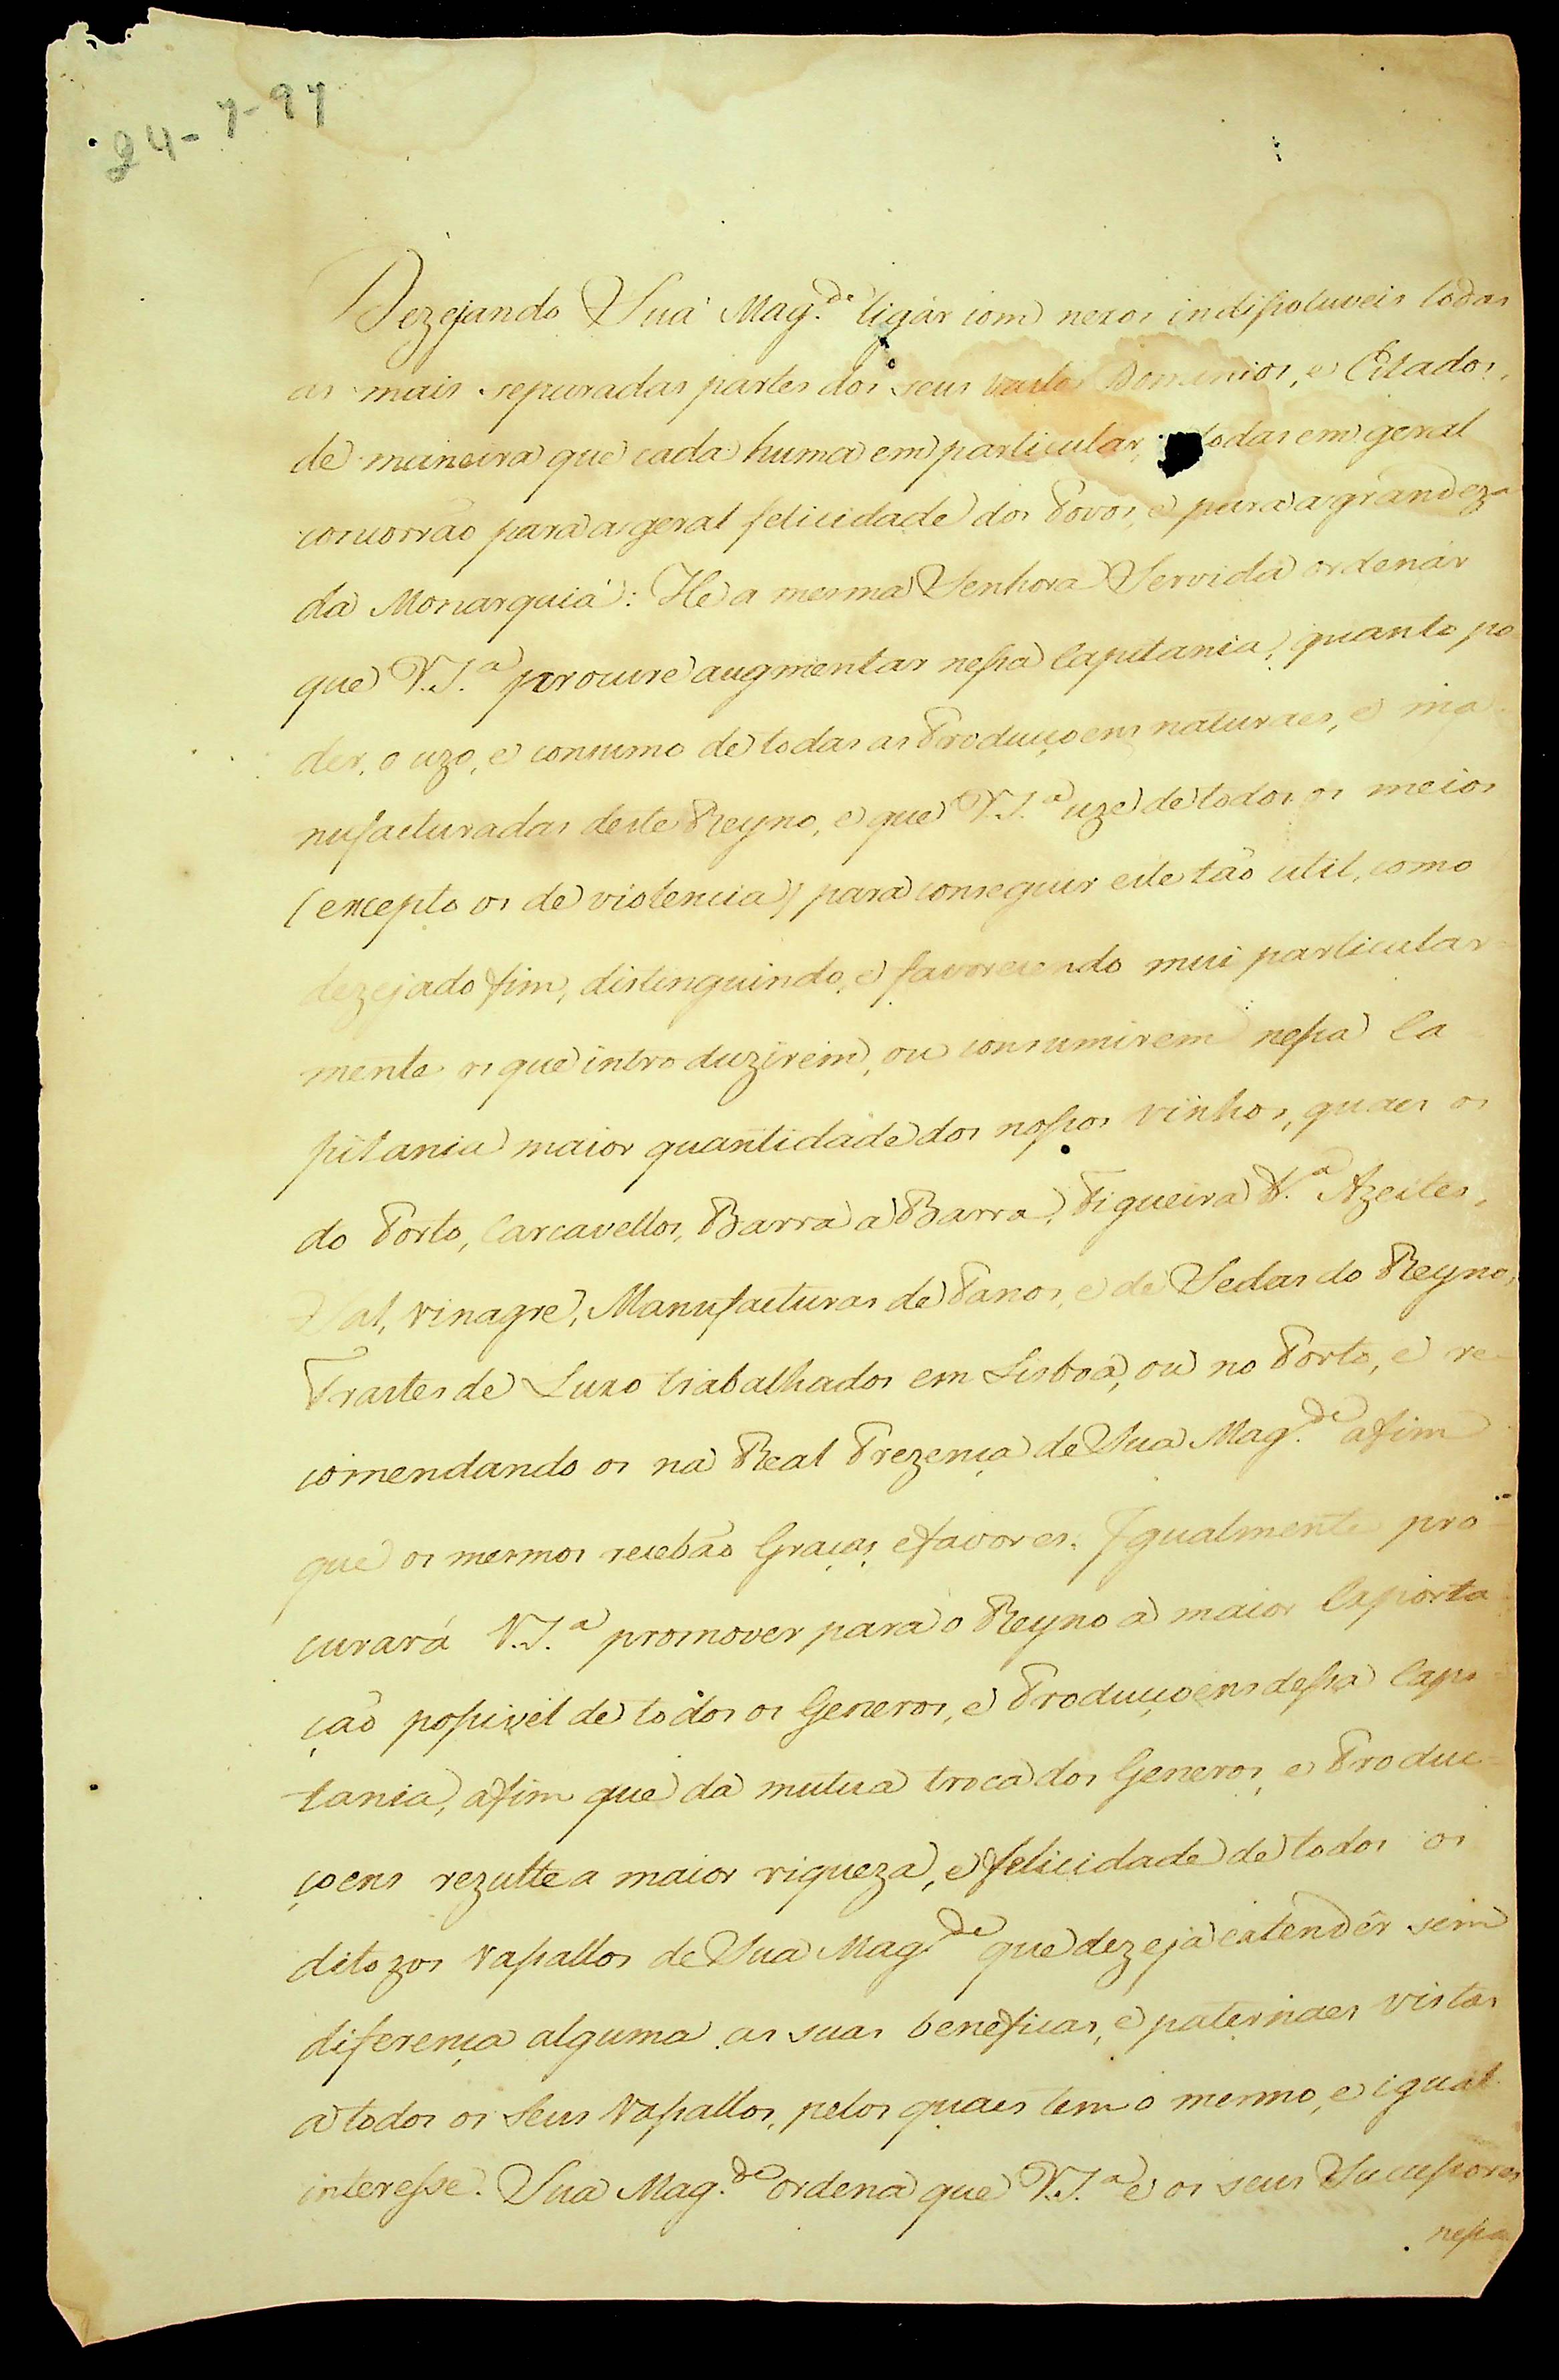 24-7-97
Dezejando Sua Mag.de ligár com nexos indissoluveis todas
as mais separadas partes dos seus vastos Dominios, e Estados,
de maneira que cada huma em particular, todas em geral
concorrão para a geral felicidade dos Povos, e para a grandeza
da Monarquia: He a mesma Senhora Servida ordenár
que V.S.a procure augmentar nessa Capitania, quanto po
der, o uzo, e consumo de todas as Producçoens naturaes, e ma
nufacturadas deste Reyno, e que V.S.a uze de todos os meios
(excepto os de violencia) para conseguir este tão util, como
dezejado fim, distinguindo, e favorecendo mui particular=
mente os que introduzirem, ou consumirem nessa Ca
pitania maior quantidade dos nossos vinhos, quaes os
do Porto, Carcavellos, Barra a Barra, Figueira &.a Azeites,
Sal, vinagre, Manufacturas de Panos, e de Sedas do Reyno,
Trastes de Luxo trabalhados em Lisboa, ou no Porto, e re-
comendando os na Real Prezença de Sua Mag.de afim
que os mesmos recebão Graças, e favores. Igualmente pro-
curará V.S.a promover para o Reyno a maior Exporta
ção possivel de todos os Generos, e Producçoens dessa Capi-
tania, afim que da mutua troca dos Generos, e Produc=
çoens rezulte a maior riqueza, e felicidade de todos os
ditozos Vassallos de Sua Mag.de que dezeja extendêr sem
diferença alguma as suas beneficas, e paternaes vistas
a todos os Seus Vassallos, pelos quaes tem o mesmo, e igual
interesse. Sua Mag.de ordena que V.S.a e os seus Sucessores
nessa